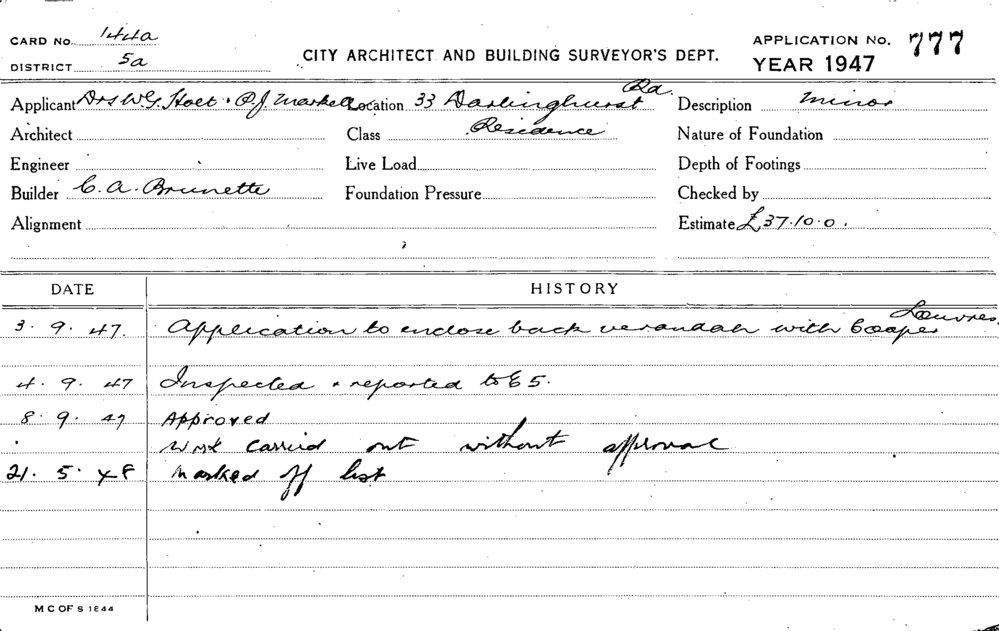 CARD No. 144a
DISTRICT 5a
CITY ARCHITECT AND BUILDING SURVEYOR'S DEPT.
APPLICATION No. 777
YEAR 1947
Applicant Drs W.G. & P.J. Markell Location 33 Darlinghurst Rd. Description Minor
Architect Class Residence Nature of Foundation
Engineer Live Load Depth of Footings
Builder C. A. Brunette Foundation Pressure Checked by
Alignment Estimate £37.10.0.
DATE HISTORY
3. 9. 47. Application to enclose back verandah with Cooper Louvres.
4. 9. 47 Inspected & reported to E5.
8. 9. 47 Approved
Work carried out without approval
21. 5. 48 Marked off list
M C OF S 1844